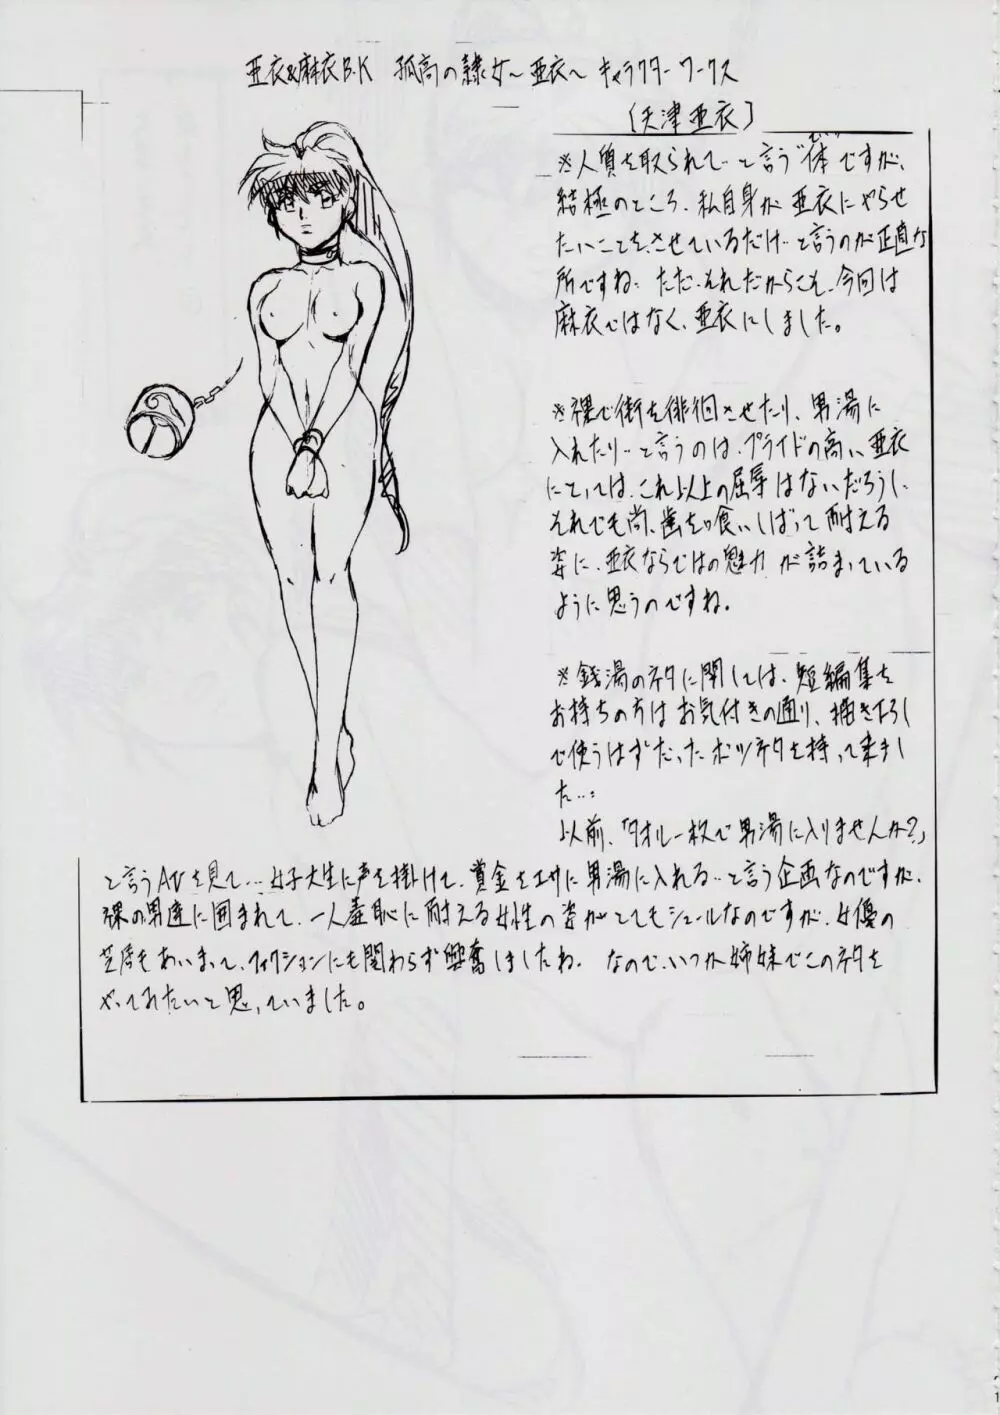 亜衣&麻衣B.K 孤高の隷女～亜衣～ キャラクターワークス
[天津亜衣]
※人質を取られて…と言う“体”ですが、
てい
結極のところ、私自身が亜衣にやらせ
たいことをさせているだけ…と言うのが正直な
所ですね。ただ、それだからこそ、今回は
麻衣ではなく、亜衣にしました。
※裸で街を徘徊させたり、男湯に
入れたり…と言うのは、プライドの高い亜衣
にとっては、これ以上の屈辱はないだろうし、
それでも尚、歯を喰いしばって耐える
姿に、亜衣ならではの魅力が詰まっている
ように思うのですね。
※銭湯のネタに関しては、短編集を
お持ちの方はお気付きの通り、描き下ろし
で使うはずだったボツネタを持って来まし
た…。
以前、「タオル一枚で男湯に入りませんか?」
と言うAVを見て…女子大生に声を掛けて、賞金をエサに男湯に入れる…と言う企画なのですが、
裸の男達に囲まれて、一人羞恥に耐える女性の姿がとてもシュールなのですが、女優の
芝居もあいまって、フィクションにも関わらず興奮しましたね。 なので、いつか姉妹でこのネタを
やってみたいと思っていました。